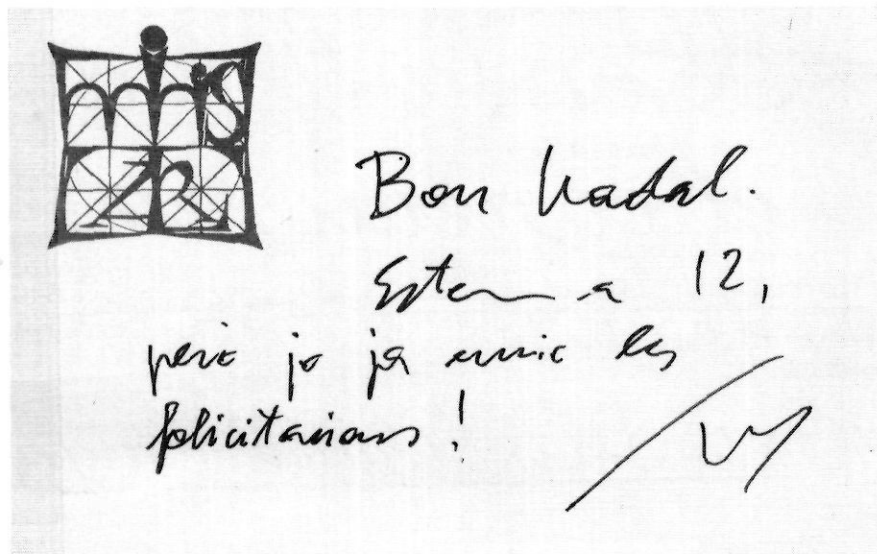 Bon Nadal.
Estem a 12,
però jo ja envio les
felicitacions!